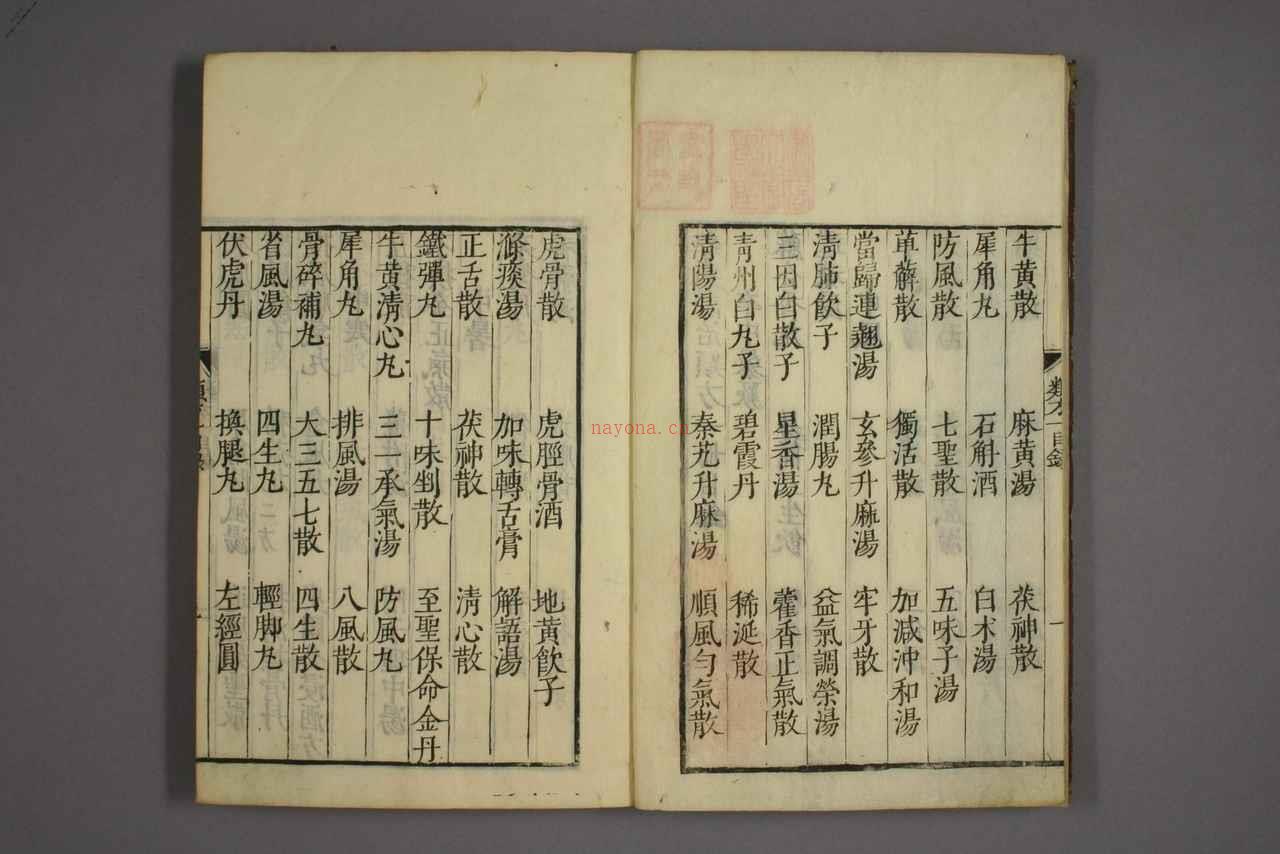 牛黄散 麻黄湯 茯神散
犀角丸 石斛酒 白术湯
防風散 七聖散 五味子湯
萆薢散 獨活散 加减沖和湯
當歸連翹湯 玄參升麻湯 牢牙散
清肺飲子 潤腸丸 益氣調榮湯
三因白散子 星香湯 藿香正氣散
青州白丸子 碧霞丹 稀涎散
清陽湯 秦艽升麻湯 順風勻氣散
虎骨散 虎脛骨酒 地黄飲子
滌痰湯 加味轉舌膏 解語湯
正舌散 茯神散 清心散
鐵彈丸 十味剉散 至聖保命金丹
牛黄清心丸 三一承氣湯 防風丸
犀角丸 排風湯 八風散
骨碎補丸 大三五七散 四生散
省風湯 四生丸 輕脚丸
伏虎丹 換腿丸 左經圓
類方一目錄 一
nayona.cn